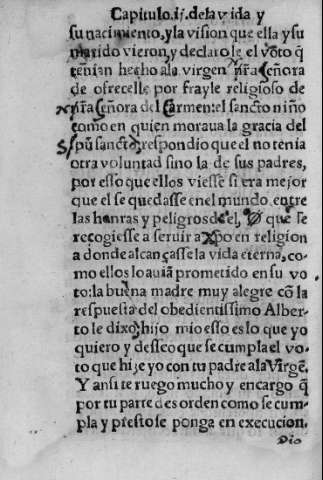 Capitulo.ij.dela vida y
su nacimiento, y la vision que ella y su
marido vieron, y declarole el voto q̃
tenian hecho ala virgen nr̃a Señora
de ofrecelle por frayle religioso de
nr̃a Señora del Carmen: el sancto niño
como en quien moraua la gracia del
Spũ sancto, respondio que el no tenia
otra voluntad sino la de sus padres,
por esso que ellos viessẽ si era mejor
que el se quedasse enel mundo entre
las honras y peligros del, o que se
recogiesse a seruir a Xp̃o en religion
a donde alcançasse la vida eterna, co-
mo ellos lo auiã prometido en su vo
to: la buena madre muy alegre cõ la
respuesta del obedientissimo Alber-
to le dixo, hijo mio esso es lo que yo
quiero y desseo que se cumpla el vo-
to que hize yo con tu padre ala Virgẽ.
Y ansi te ruego mucho y encargo q̃
por tu parte des orden como se cum-
pla y presto se ponga en execucion.
Dio